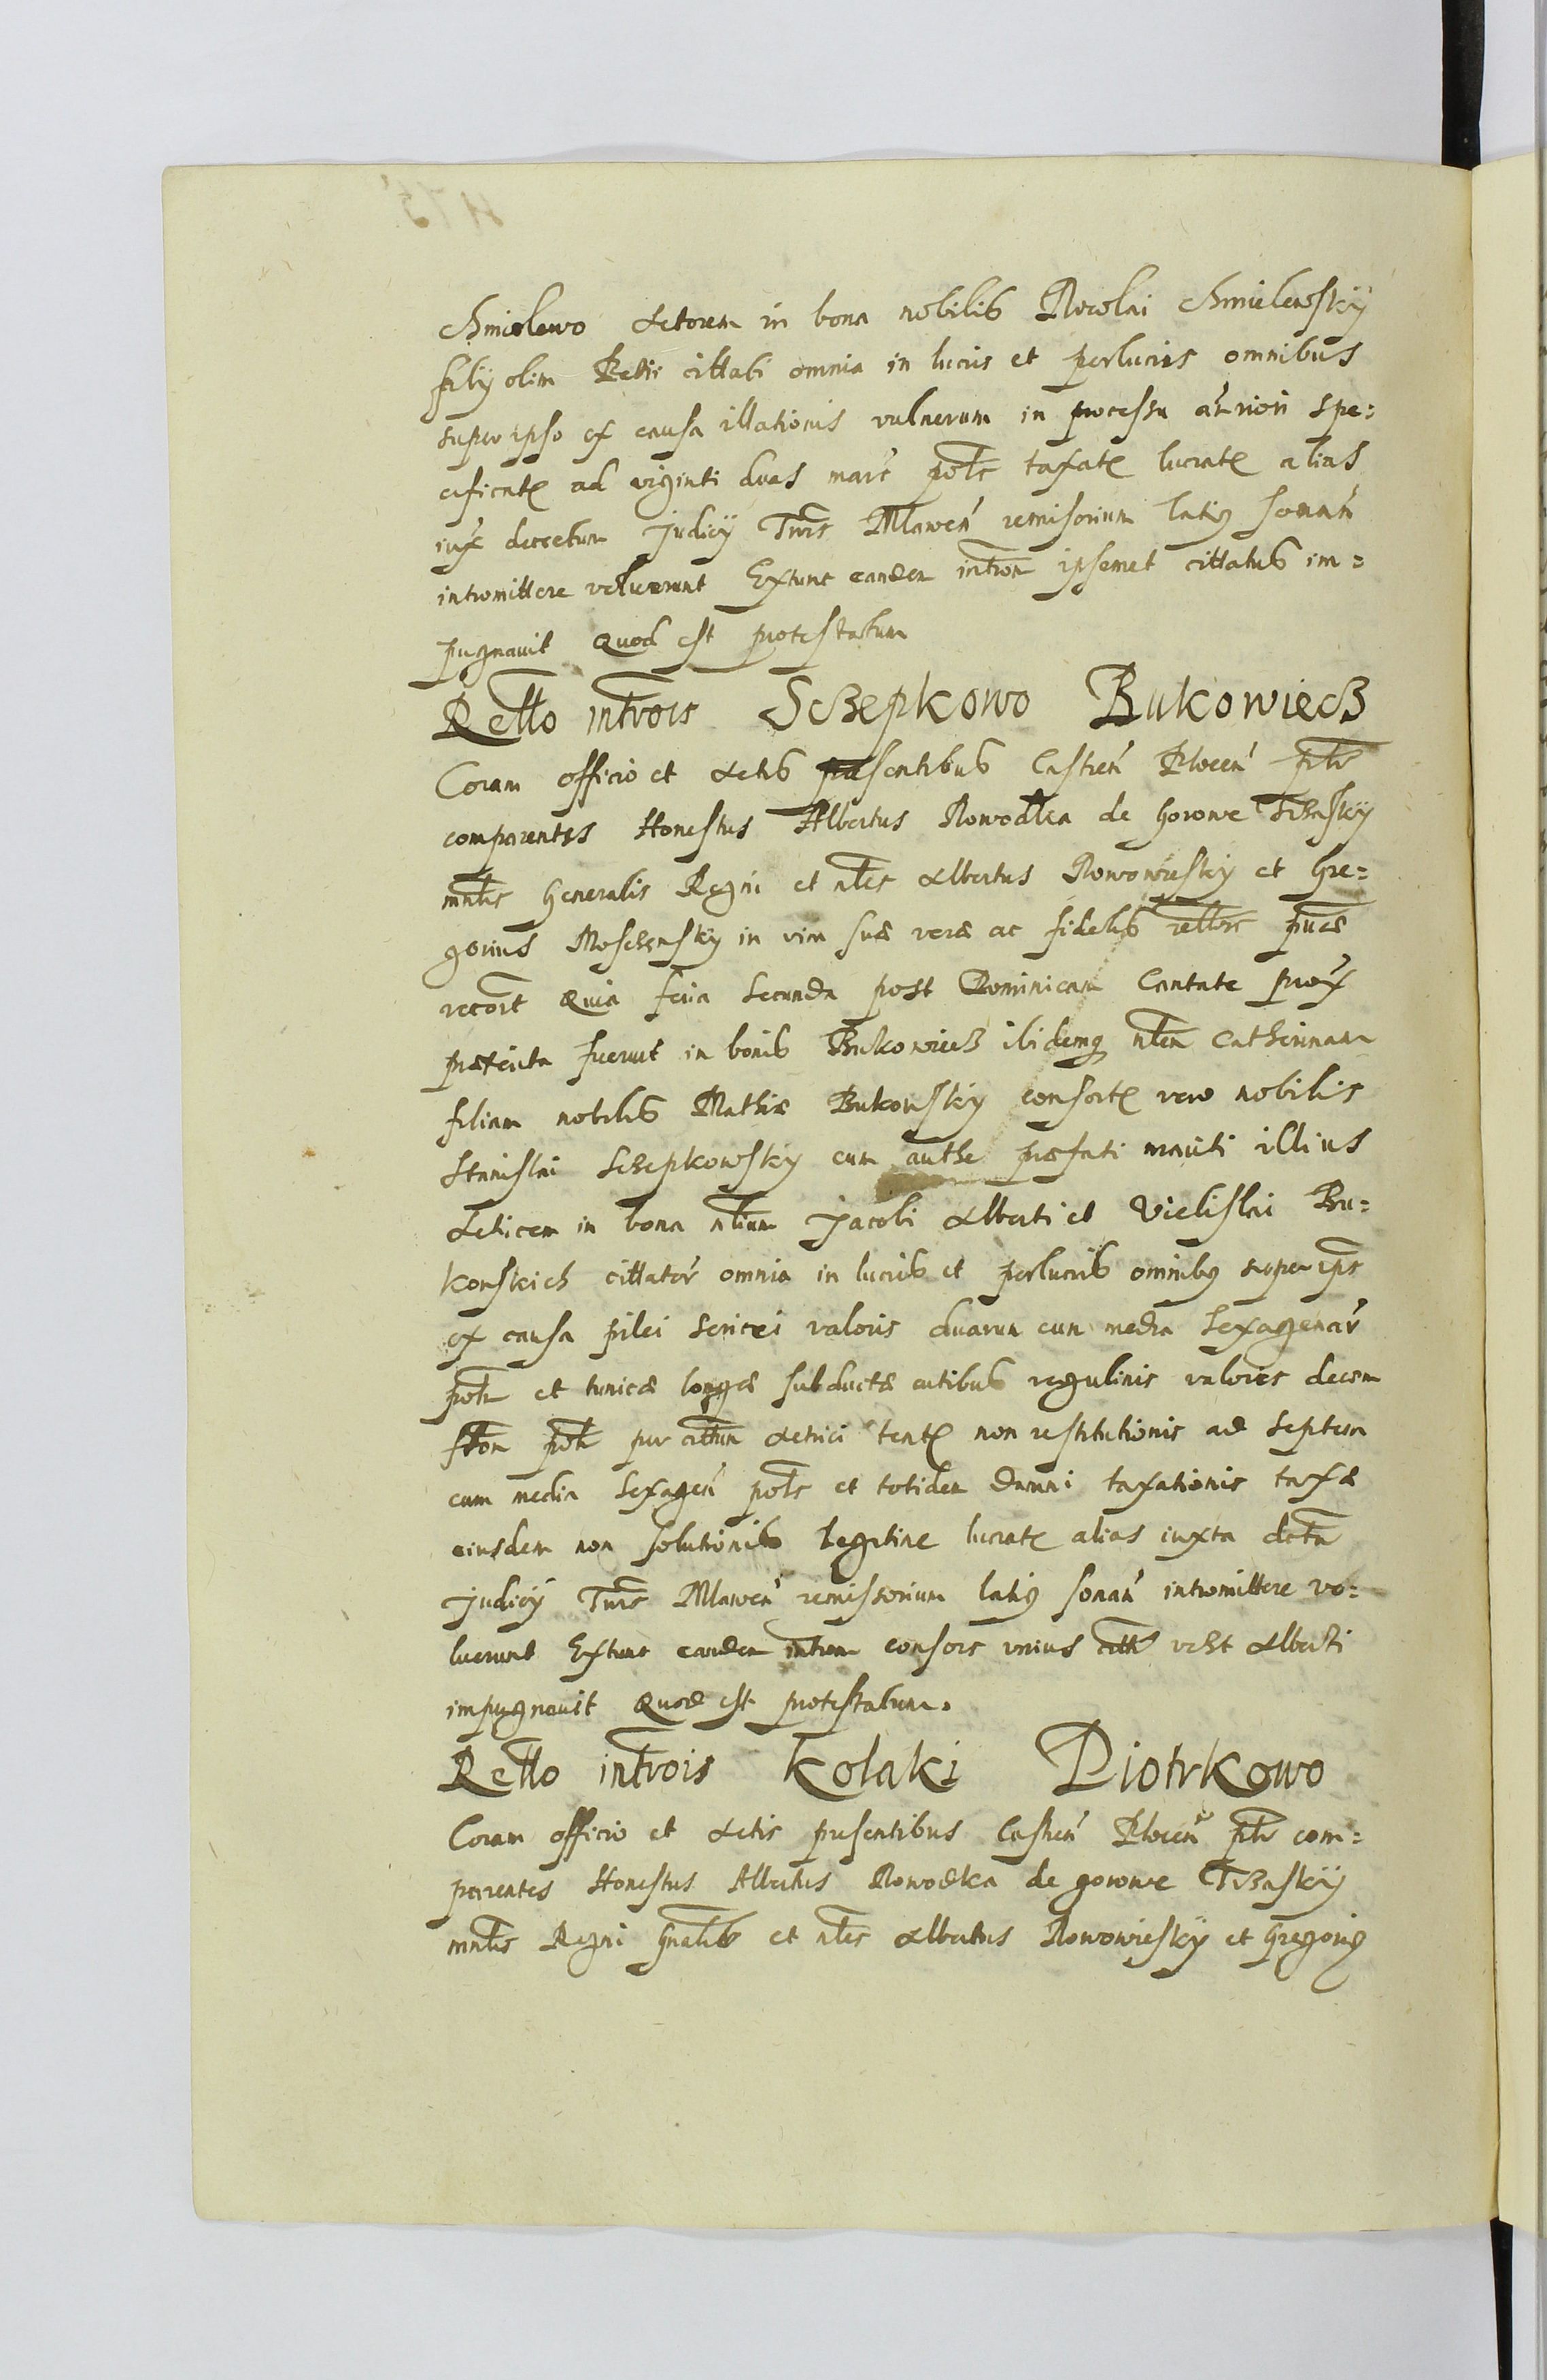 Chmielewo Actorem in bona nobilis Nicolai Chmielewsky
filÿ olim Petri cittati omnia in lucris et perlucris omnibus
super ipso ex causa illationis vulnerum in processu anriori spe=
cificat ad viginti duas marc pol taxat lucrat alias
iux decretum Judicÿ Trris Mlawen remisorium latius sonan
intromittere voluerunt Extunc eandem introm ipsemet cittatus im=
pugnauit Quod est protestatum
Retto introis Sczepkowo Bukowiecz
Coram officio et Actis præsentibus Castren Plocen ptr
comparentes Honestus Albertus Nowodka de Gorowe Trzasky
mntlis Generalis Regni et nles Albertus Nowowiesky et Gre=
gorius Moschensky in vim suæ veræ ac fidelis rettois pucæ
recort Quia feria secunda post Dominicam Cantate prox
præterita fuerunt in bonis Bukowiecz ibidemq nlem Catherinam
filiam nobilis Mathiæ Bukowsky consort vero nobilis
Stanislai Sczepkowsky cum authe præfati mariti illius
Actricem in bona nlium Jacobi Alberti et Vielislai Bu=
kowskich cittator omnia in lucris et perlucris omnibus super ips
ex causa pilei sericei valoris duarum cum media sexagenar
pol et tunicæ longæ subductæ cutibus vegulinis valores decem
flon pol per cittum Actrici tent non restitutionis ad septem
cum media sexagen pol et totidem damni taxationis taxæ
eiusdem non solutionis legitime lucrat alias iuxta detm
Judicÿ Trris Mlawen remissorium latius sonan intromittere vo=
luerunt Extunc eandem introm consors unius citti vczt Alberti
impugnauit Quod est protestatum.
Retto introis Kolaki Piotrkowo
Coram officio et Actis presentibus Castren Plocen ptr com=
parentes Honestus Albertus Nowodka de gorowe Trzasky
mntlis Regni Gnalis et nles Albertus Nowowiesky et Gregorius